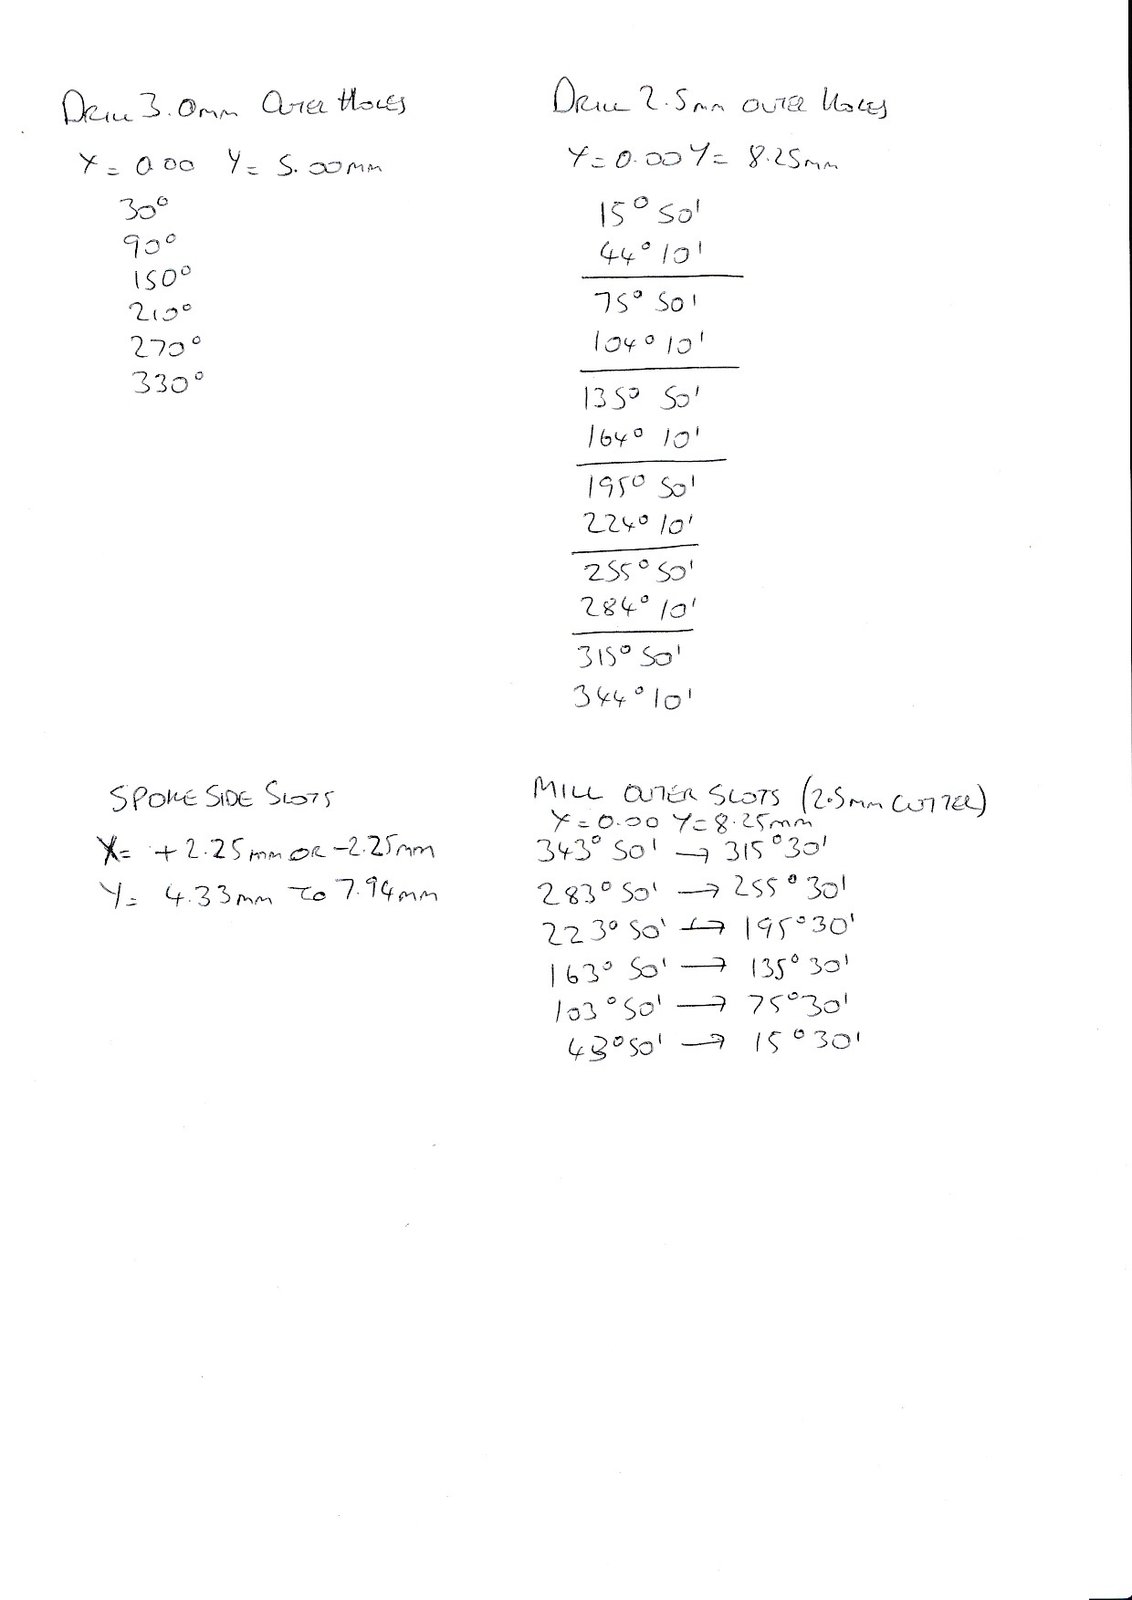 Drill 3.0mm Outer Holes
X = 0.00 Y = 5.00mm
30°
90°
150°
210°
270°
330°
Drill 2.5mm outer Holes
X = 0.00 Y = 8.25mm
15° 50'
44° 10'
75° 50'
104° 10'
135° 50'
164° 10'
195° 50'
224° 10'
255° 50'
284° 10'
315° 50'
344° 10'
SPOKE SIDE SLOTS
X = +2.25mm OR -2.25mm
Y = 4.33mm TO 7.94mm
MILL OUTER SLOTS (2.5mm CUTTER)
X = 0.00 Y = 8.25mm
343° 50' → 315° 30'
283° 50' → 255° 30'
223° 50' → 195° 30'
163° 50' → 135° 30'
103° 50' → 75° 30'
43° 50' → 15° 30'